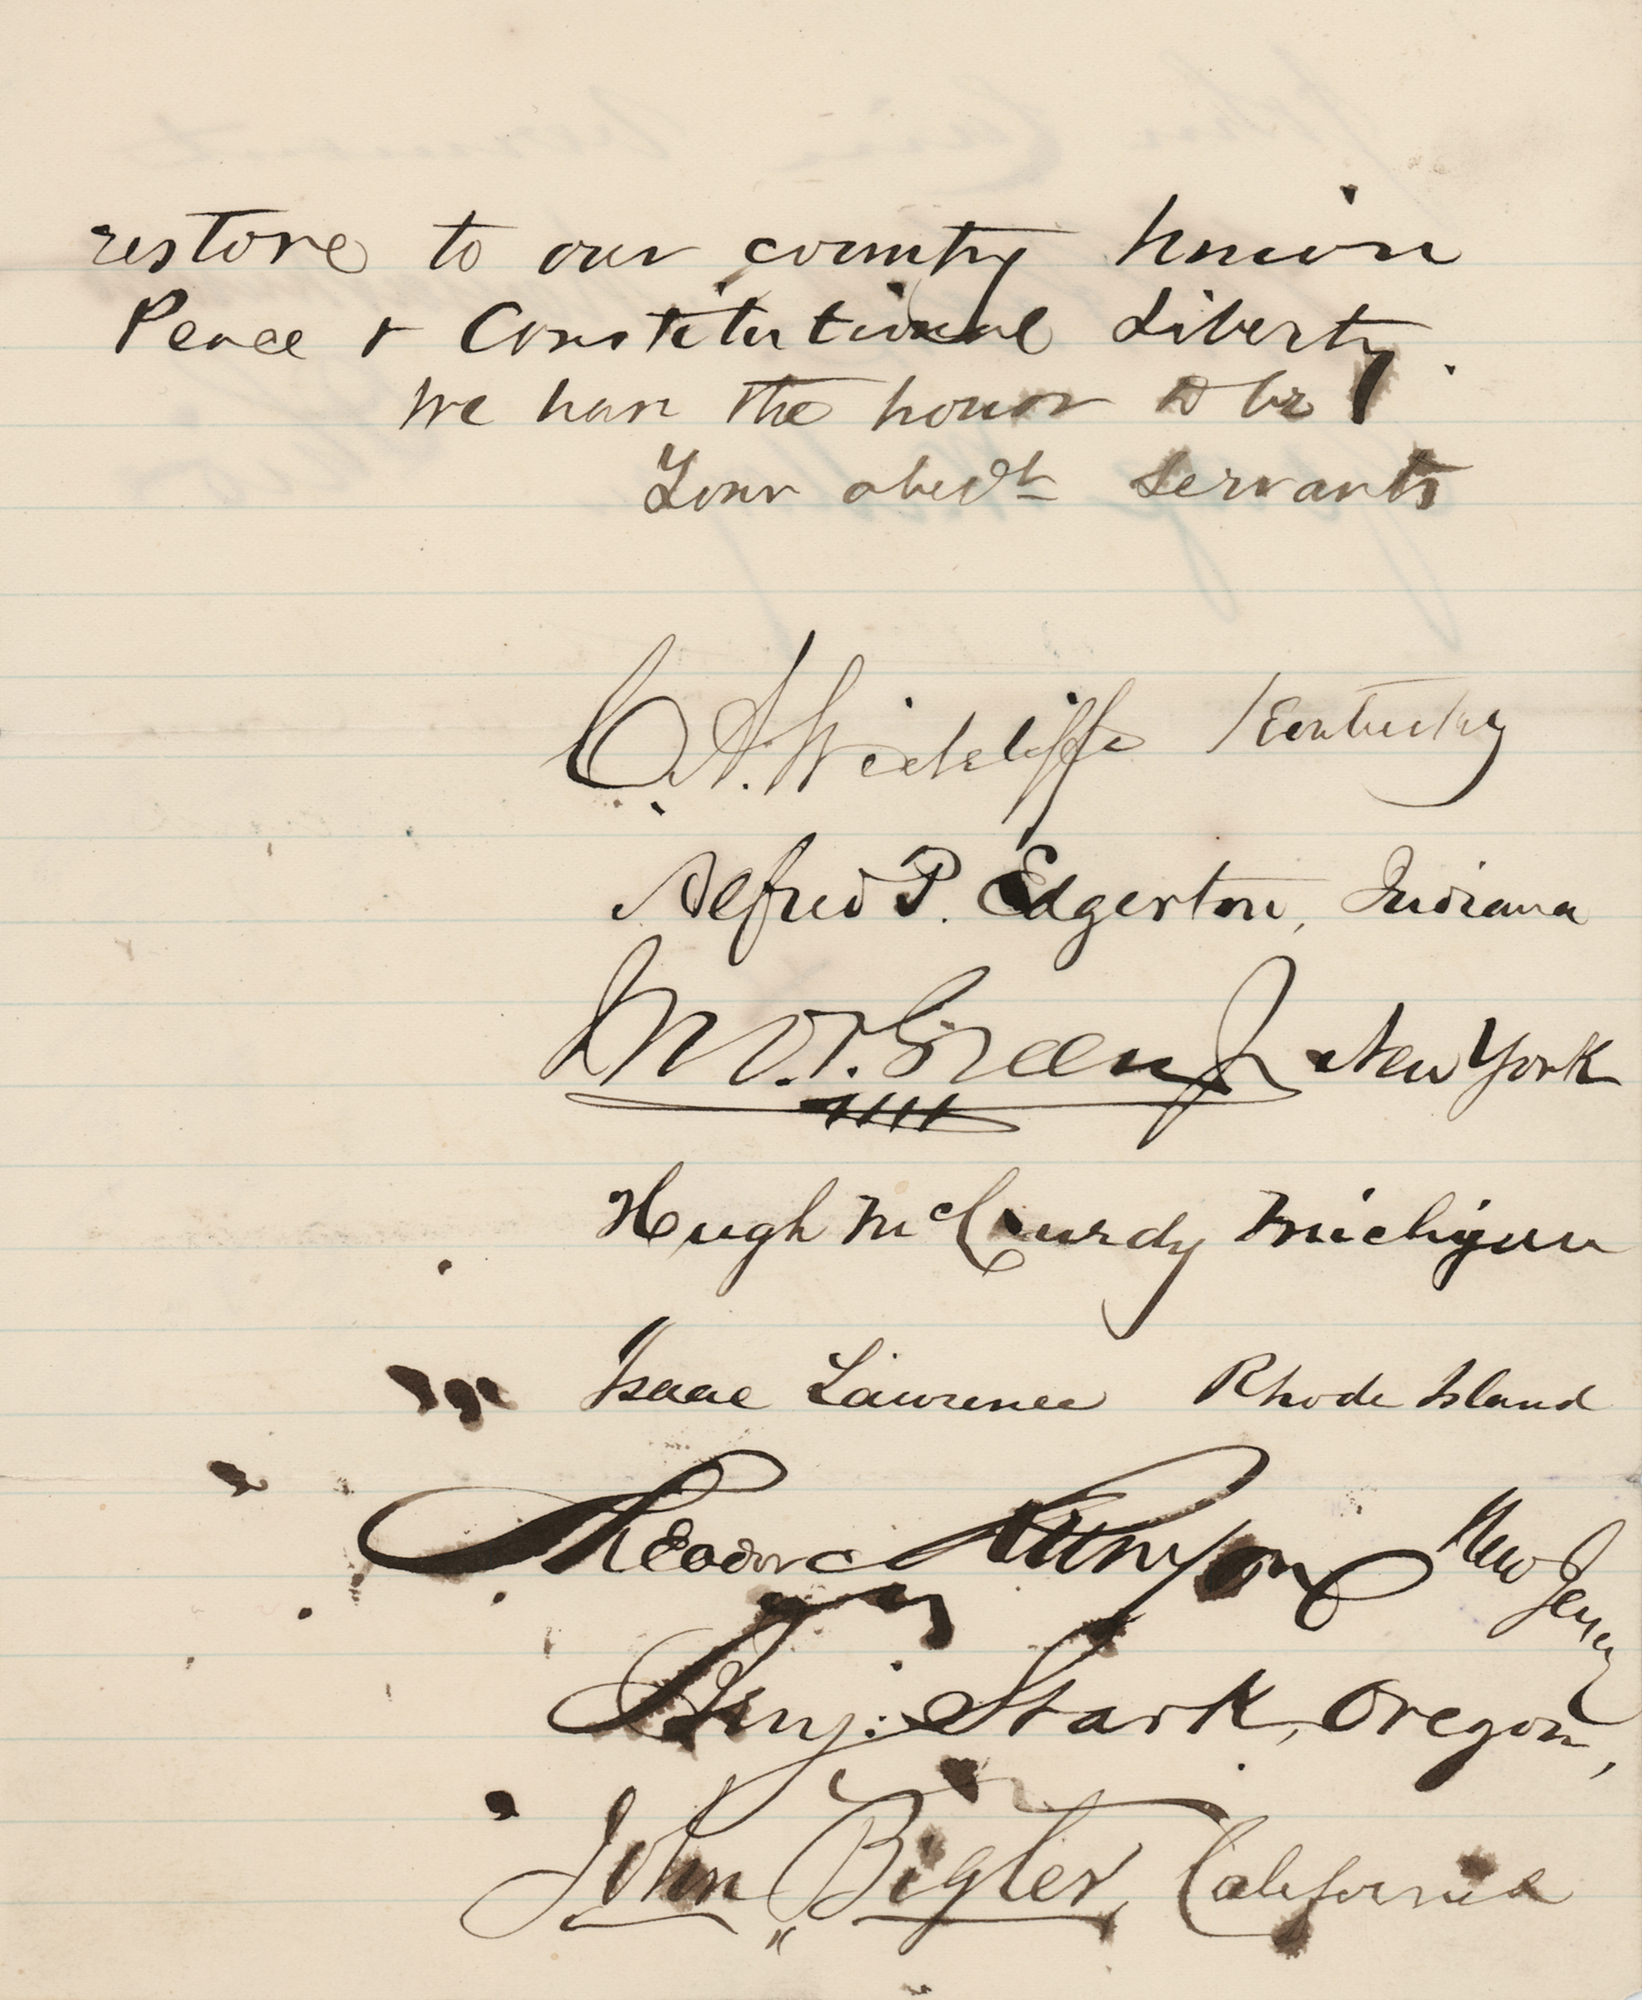 restore to our country Union
Peace & Constitutional Liberty.
We have the honor to be
Your obedt servants
C. A. Wickliffe Kentucky
Alfred P. Edgerton, Indiana
Green Jr New York
Hugh McCurdy Michigan
Isaac Lawrence Rhode Island
Theodore Runyon New Jersey
Benj: Stark, Oregon,
John Bigler, California